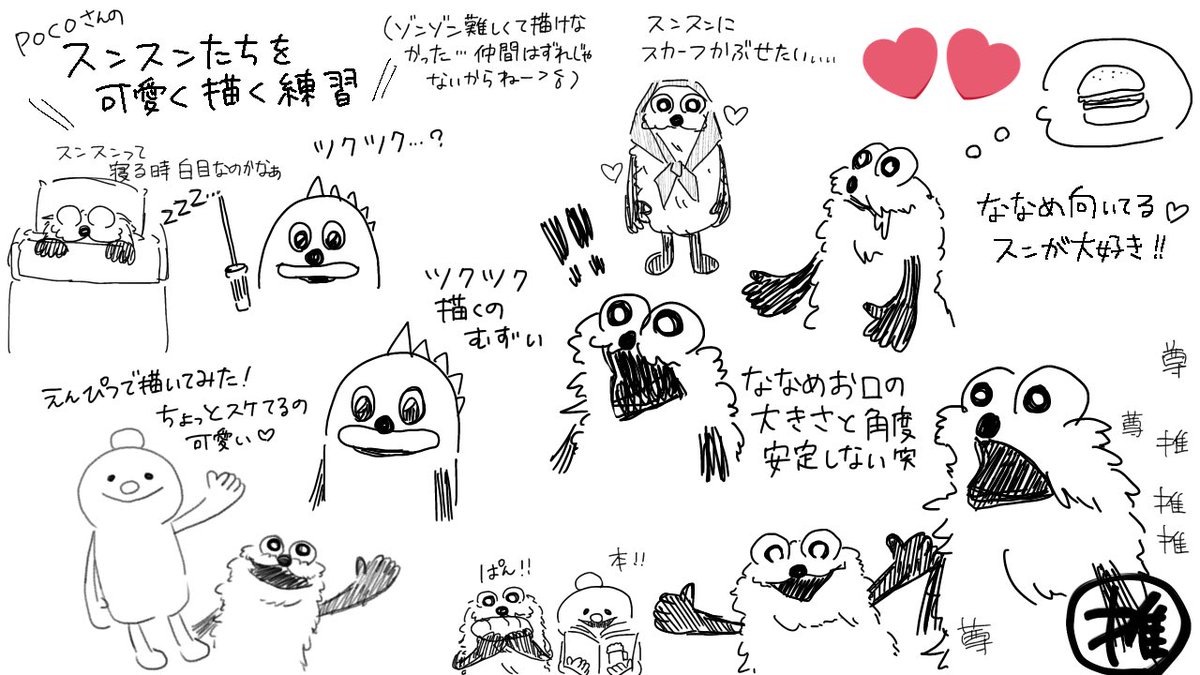 POCOさんの
スンスンたちを
可愛く描く練習
(ゾンゾン難しくて描けな
かった…仲間はずれじゃ
ないからねー>δ)
スンスンに
スカーフかぶせたいぃぃ
スンスンって
寝る時白目なのかなぁ
zzz…
ツクツク…?
!!
ななめ向いてる♡
スンが大好き!!
ツクツク
描くの
むずい
えんぴつで描いてみた!
ちょっとスケてるの
可愛い♡
ななめお口の
大きさと角度
安定しない笑
尊
尊
推
推
推
ぱん!!
本!!
尊
推